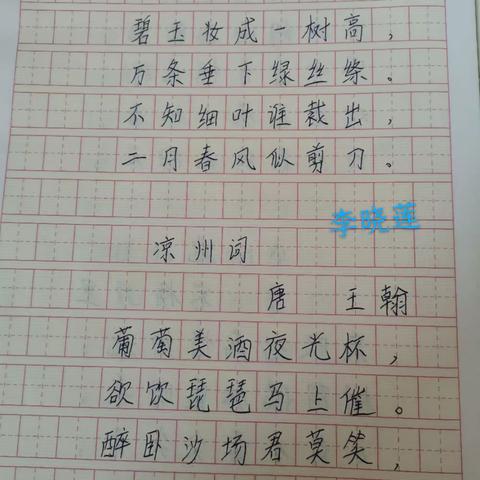 碧玉妆成一树高，
万条垂下绿丝绦。
不知细叶谁裁出，
二月春风似剪刀。
李晓莲
凉州词
唐 王翰
葡萄美酒夜光杯，
欲饮琵琶马上催。
醉卧沙场君莫笑，